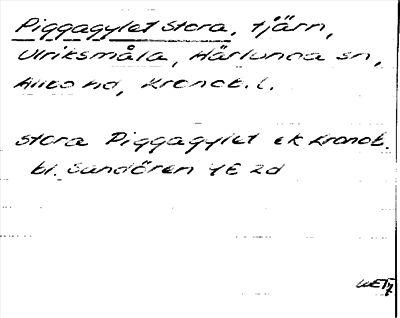 Piggagylet Stora, tjärn,
Ulriksmåla, Härlunda sn,
Allbo hd, Kronob. l.
Stora Piggagylet ek Kronob.
bl. Sandören 4E 2d